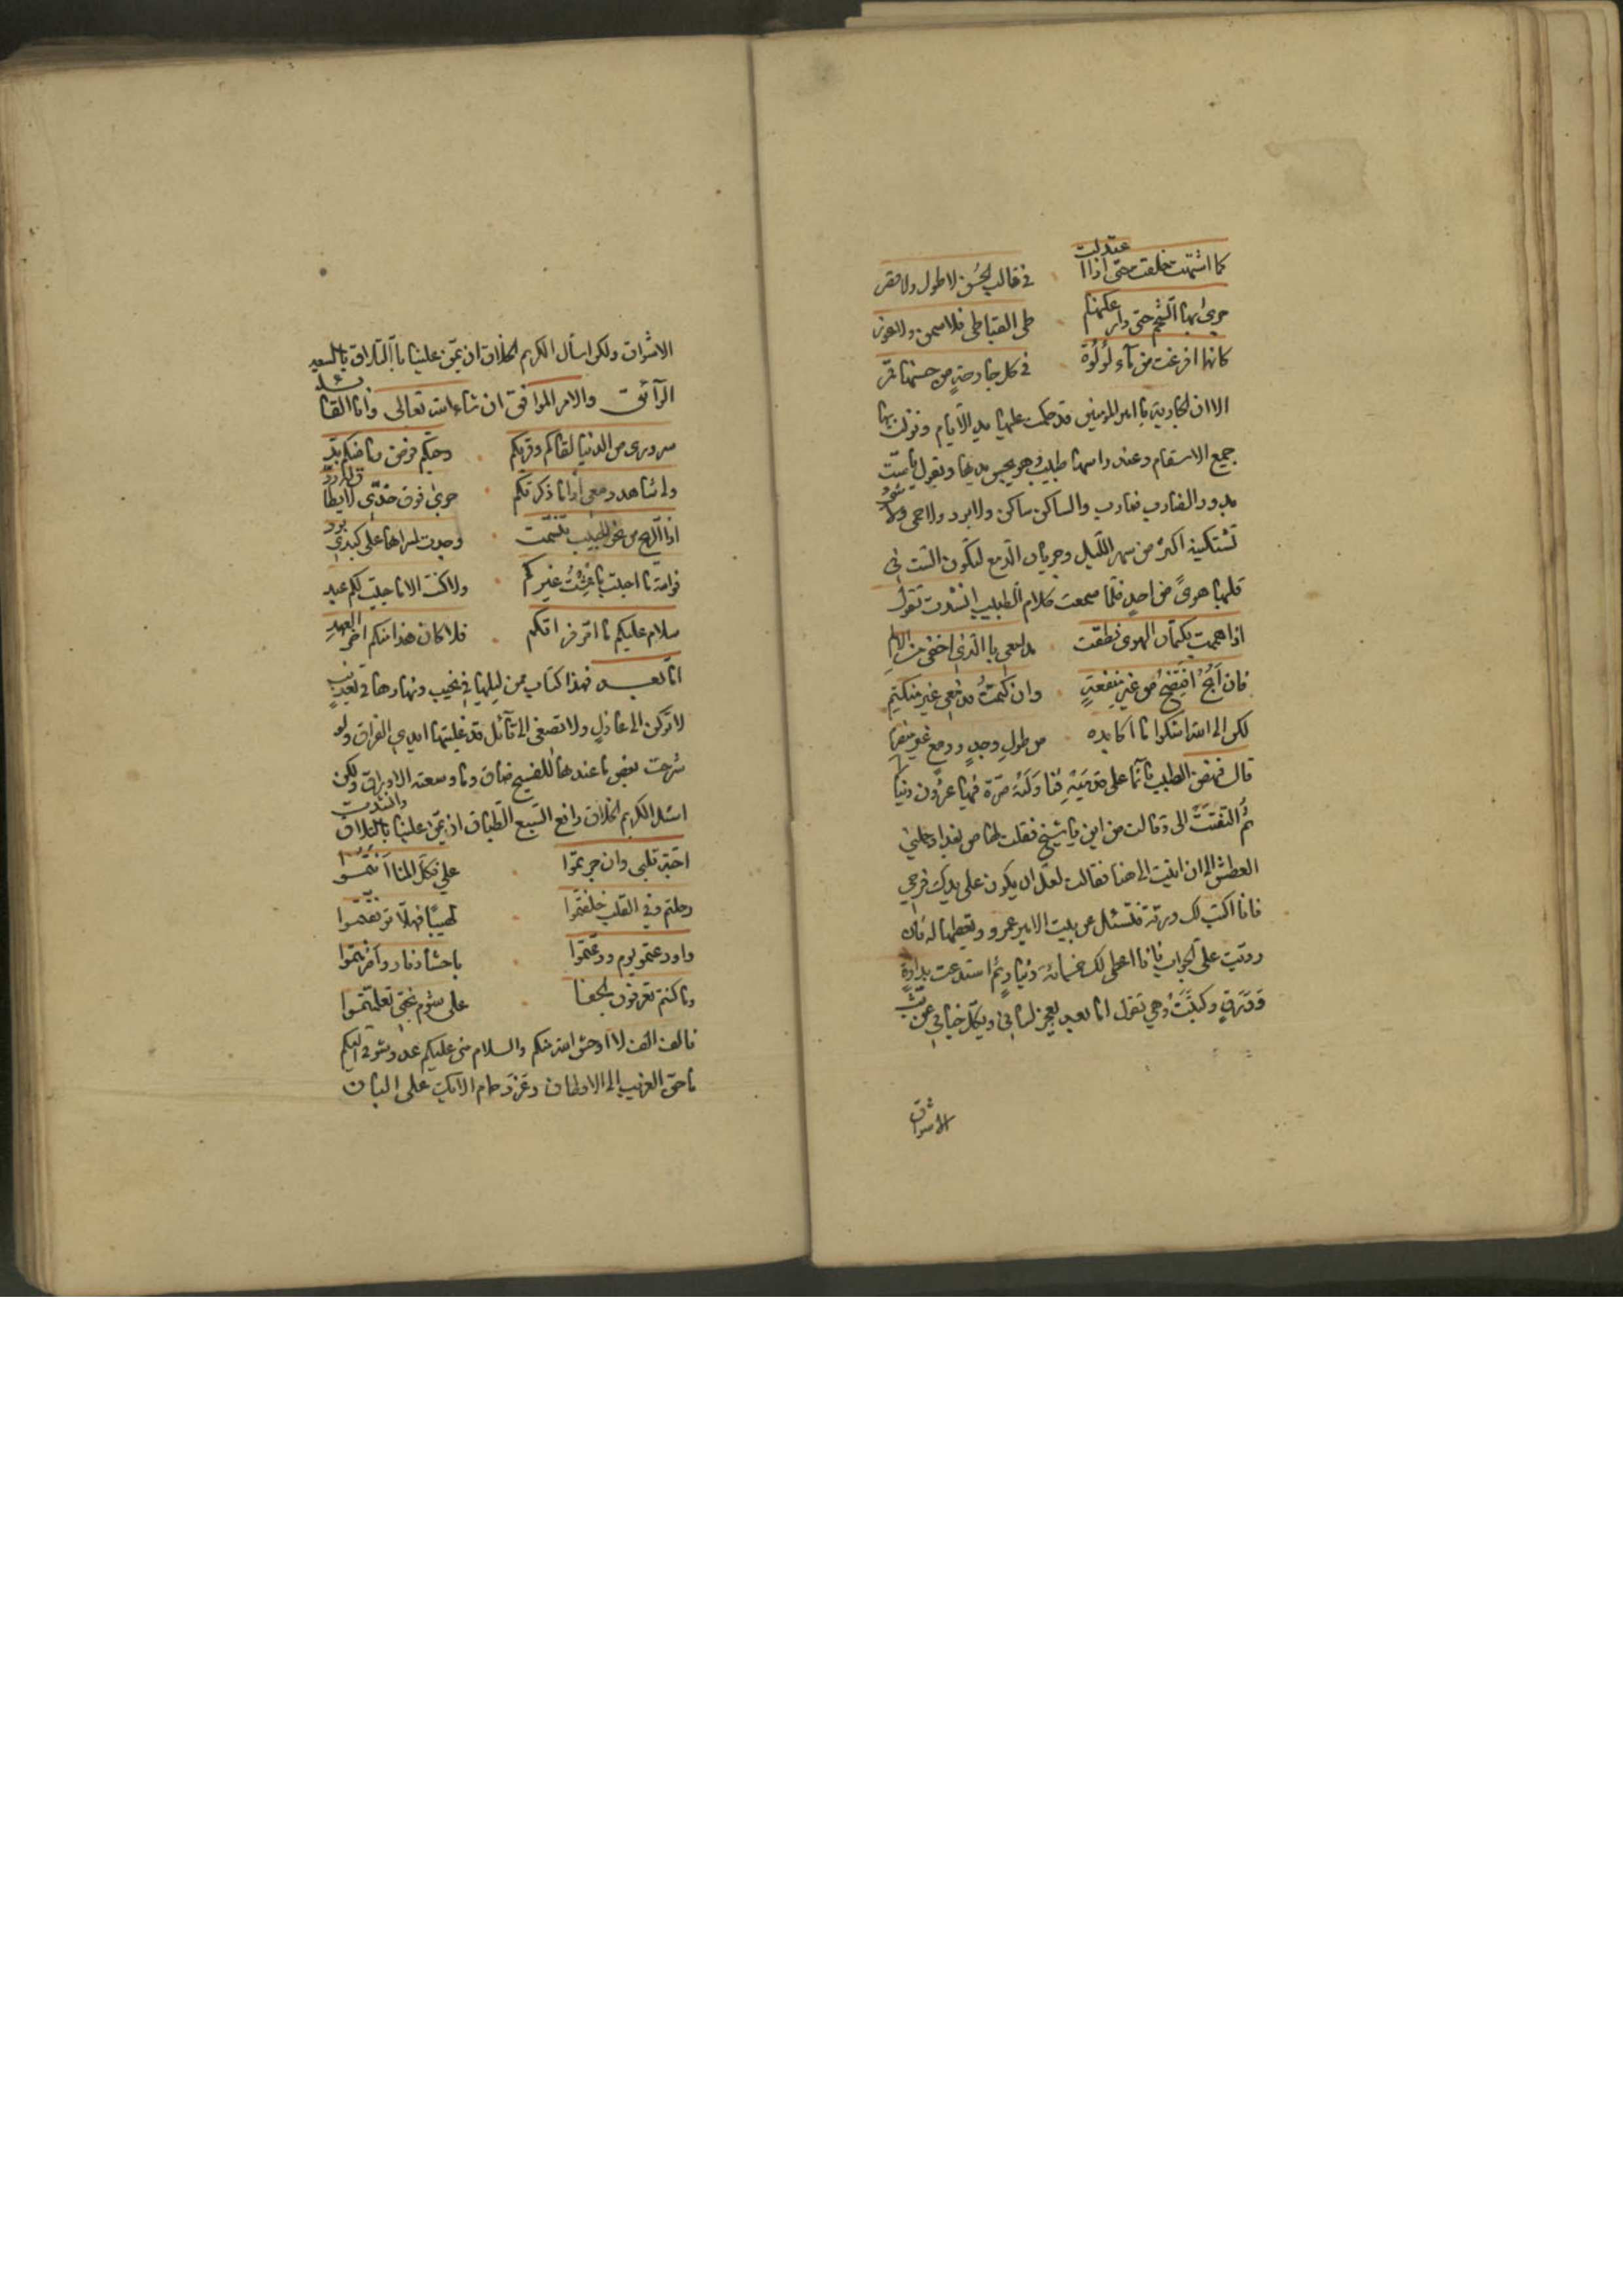 كما اشتهت خلقت حتى اذا اعتدلت في قالب الحسن لا طول ولا قصر
جرى بها الشحم حتى دار عكنها طي القباطي فلا سمن ولا عور
كانها افرغت من مآء لؤلؤة في كل جارحة من حسنها قمر
الا ان الجارية يا امير المؤمنين قد حكمت عليها يد الايام ونزلت بها
جميع الاسقام وعند راسها طبيب وهو يجس يديها ويقول يا ست
بدور الضارب ضارب والساكن ساكن ولا برد ولا حمى ولا شيء
تشتكينه اكثر من سهر الليل وجريان الدمع لتكون الست في
قلبها هوى من احد فلما سمعت كلام الطبيب انشدت تقول
اذا هممت بكتمان الهوى نطقت مدامعي بالذي اخفي من الالم
فان ابح افتضح من غير منفعة وان كتمت فدمعي غير منكتم
لكن الى الله اشكوا ما اكابده من طول وجد ودمع غير منصرم
قال فنهض الطبيب قائما على قدميه فناولته صرة فيها عشرون دينارا
ثم التفتت الى وقالت من اين يا شيخ فقلت لها من بغداد حملني
العطش الى ان اتيت الى هنا فقالت لعل ان يكون على يديك فرجي
فانا اكتب لك ورقة فتسئل عن بيت الامير عمرو وتعطيها له فان
رديت علي الجواب فانا اعطي لك خمسمائة دينار ثم استدعت بدواة
وورق وكتبت وهي تقول اما بعد يعجز لساني ويكل خباني عن بث
الاشواق
الاشواق ولكن اسال الكريم الخلاق ان يمن علينا بالتلاق بالسعيد
الرآئق والامر الموافق ان شاء الله تعالى وانا القائله
سروري من الدنيا لقاكم وقربكم وحبكم فرض ما منكم بد
ولي شاهد دمعي اذا ما ذكرتكم جرى فوق خدي لا يطاق له رد
اذا الريح من نحو الحبيب تنسمت وجدت لمسراها على كبدي برد
فوالله ما احببت ما عشت غيركم ولا كنت الا ما حييت لكم عبد
سلام عليكم ما امر فراقكم فلا كان هذا منكم اخر العهد
اما بعد فهذا كتاب ممن ليلها في نحيب ونهارها في تعذيب
لا تركن الى عاذل ولا تصغى الى قائل قد غلبتها ايدي الفراق ولو
شرحت بعض ما عندها للفسيح ضاق وما وسعته الاوراق ولكن
اسئل الكريم الخلاق رافع السبع الطباق ان يمن علينا بالتلاق وانشدت
احبة قلبي وان جرتموا علي فكل المنا انتموا
رحلتم وفي القلب خلفتموا لهيبا فهلا ترفقتموا
واودعتموا يوم ودعتموا باحشاء نار واضرمتموا
وما كنتم تعرفون الجفا على شوم بختي تعلمتموا
فالف الف لا اوحش الله منكم والسلام مني عليكم عدد شوقي اليكم
ما حن الغريب الى الاوطان وغرد حمام الايك على البان